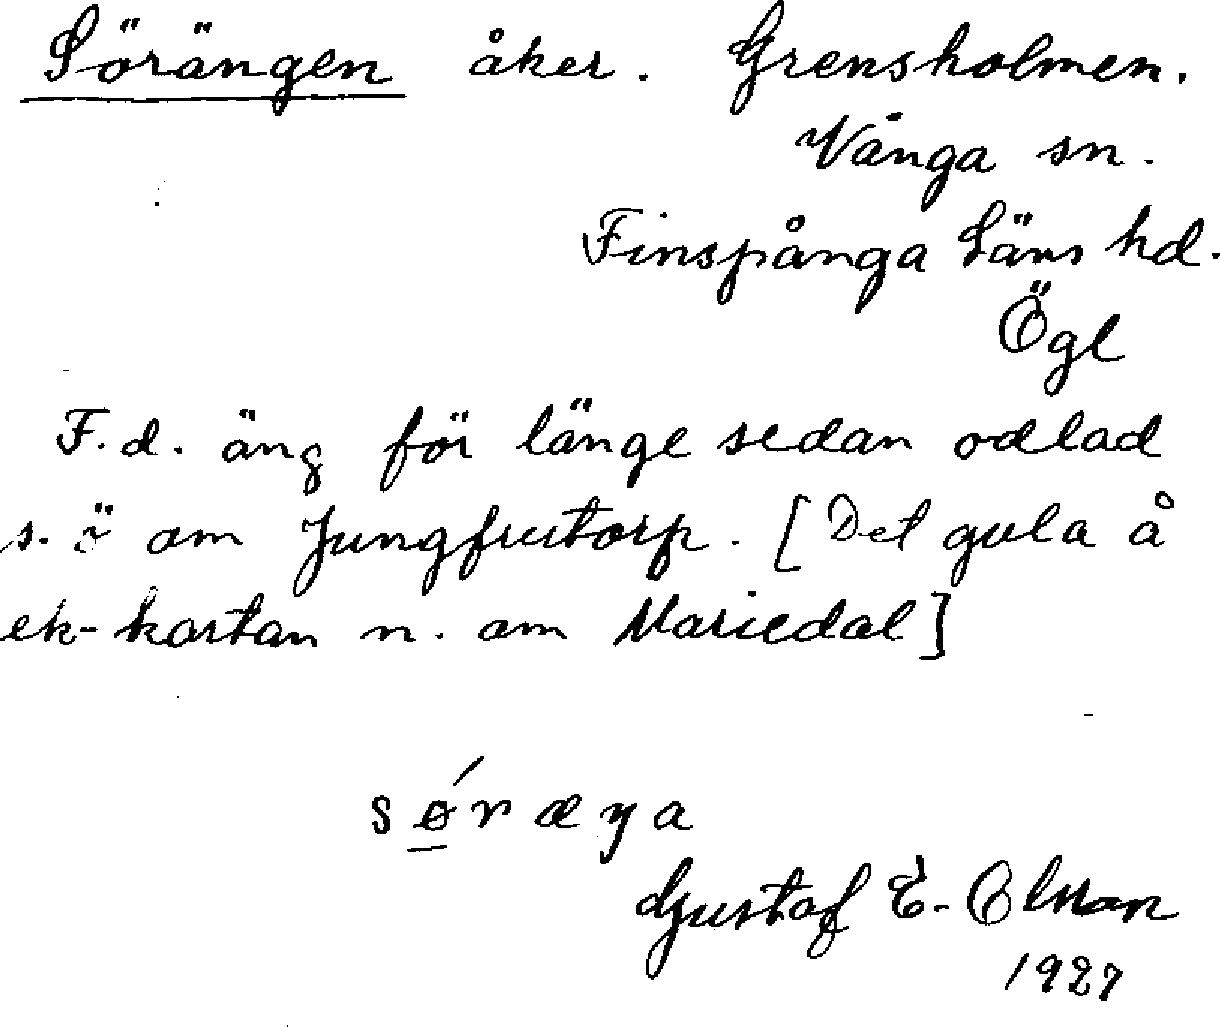 Sörängen åker. Grensholmen.
Vånga sn.
Finspånga läns hd.
Ögl
F.d. äng för länge sedan odlad
s. ö om Jungfrutorp. [Det gula å
ek-kartan n. om Mariedal]
sǿræŋa
Gustaf E. Olsson
1927